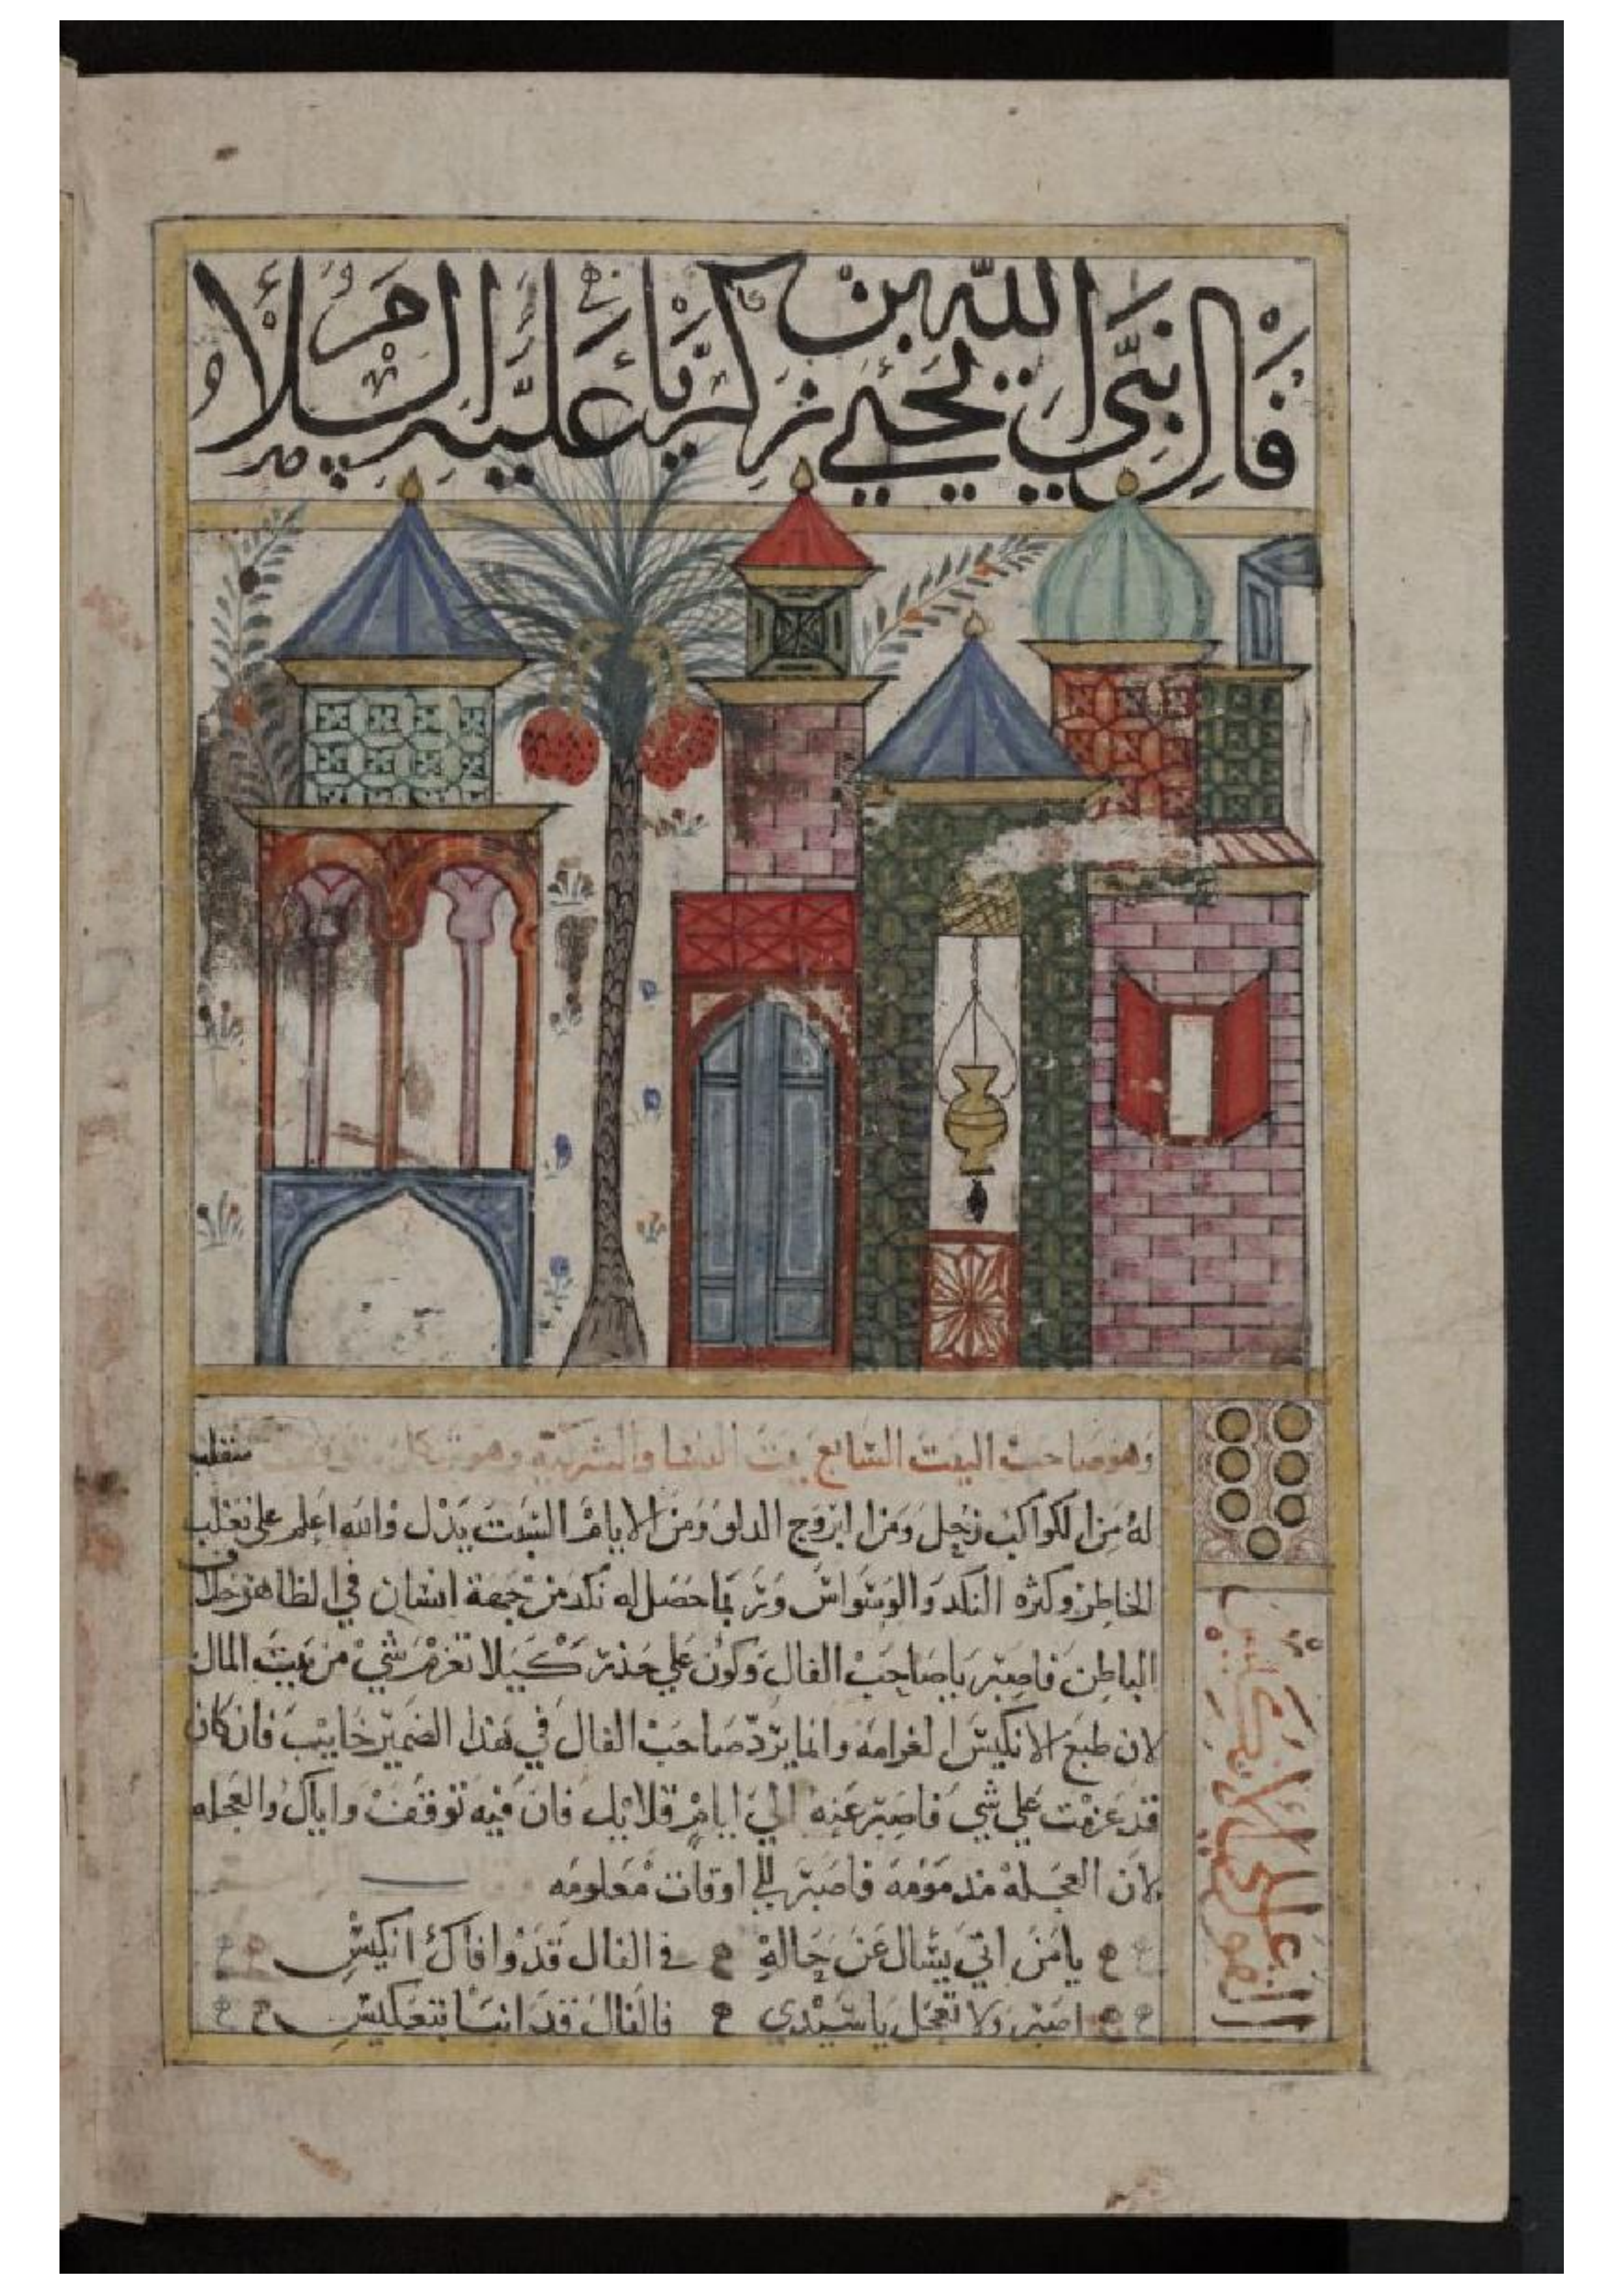 فال نبي الله يحيي بن زكريا عليه السلام
وهو صاحب البيت السابع بيت النسا والشركة وهو شكل منقلب
له من الكواكب زحل ومن البروج الدلو ومن الايام السبت يدل والله اعلم علي تغلب
الخاطر وكثره النكد والوسواس وربما حصل له نكد من جهة انسان في الظاهر خلاف
الباطن فاصبر يا صاحب الفال وكون علي حذر كيلا تغرم شي من بيت المال
لان طبع الانكيس الغرامه وانما يرد صاحب الفال في هذا الضمير خايب فان كان
قد عزمت علي شي فاصبر عنه الي ايام قلايل فان فيه توقف واياك والعجله
لان العجله مذمومه فاصبر الي اوقات معلومه
يا من اتي يسال عن حاله في الفال قد وافاك انكيس
اصبر ولا تعجل يا سيدي فالفال قد انبا بتعكيس